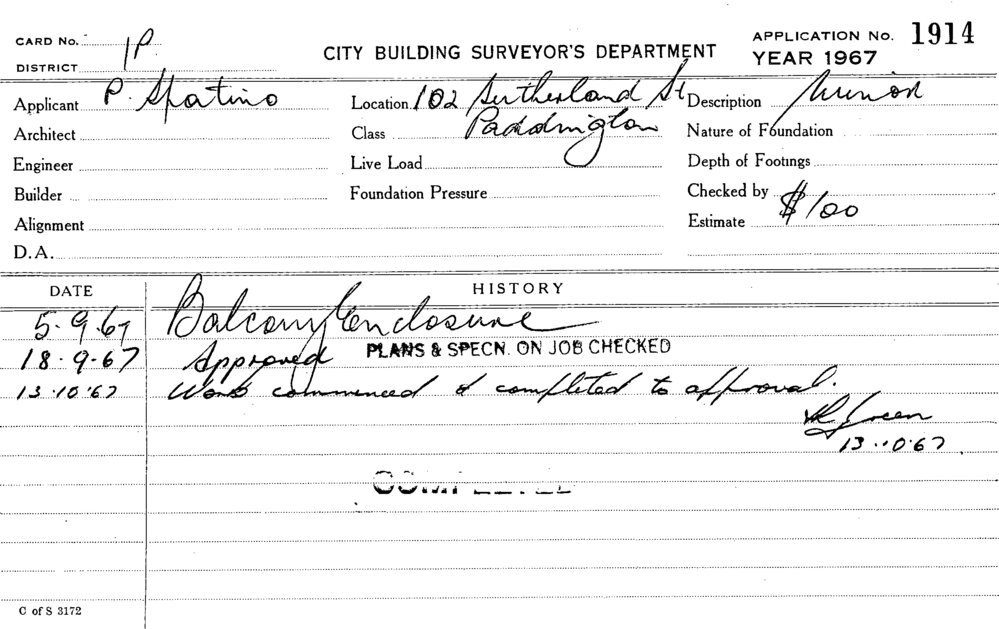 CARD No.
1P
DISTRICT
CITY BUILDING SURVEYOR'S DEPARTMENT
APPLICATION No. 1914
YEAR 1967
Applicant P. Spatino
Location 102 Sutherland St
Description Minor
Architect
Class Paddington
Nature of Foundation
Engineer
Live Load
Depth of Footings
Builder
Foundation Pressure
Checked by
Alignment
Estimate $100
D.A.
DATE
HISTORY
5.9.67 Balcony Enclosure
18.9.67 Approved PLANS & SPECN. ON JOB CHECKED
13.10.67 Work commenced & completed to approval.
Green
13.10.67
C of S 3172